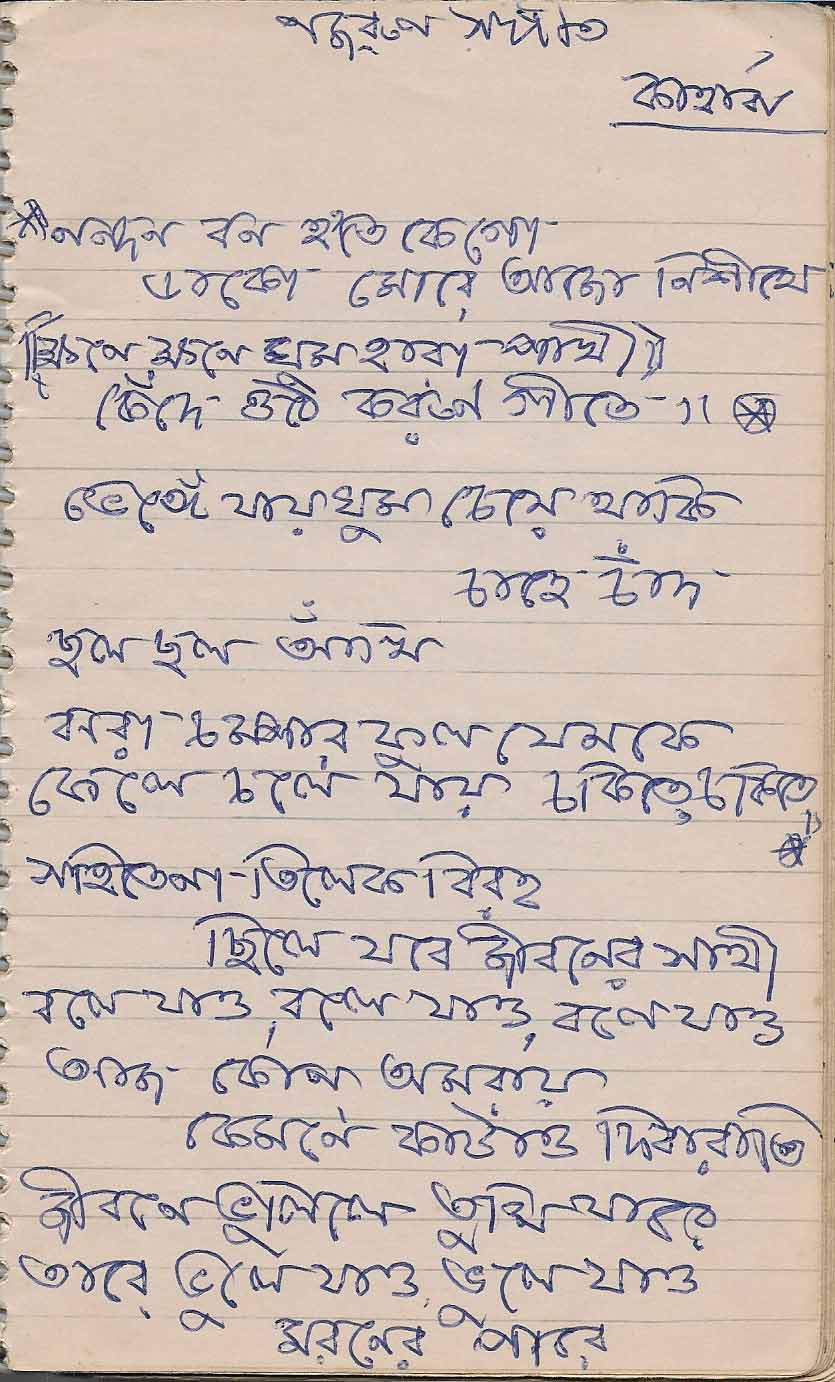 নজরুল সঙ্গীত
কাহার্বা
নন্দন বন হতে কেগো
ডাকো মোরে আজো নিশীথে
ক্ষণে ক্ষণে ঘুম হারা পাখী
কেঁদে ওঠে করুণ গীতে ৷৷
ভেঙ্গে যায় ঘুম চেয়ে থাকি
চাহে চাঁদ
ছল ছল আঁখি
ঝরা চম্পার ফুল যেন কে
ফেলে চলে যায় চকিতে চকিতে ৷৷
সহিতেনা তিলেক বিরহ
ছিলে যবে জীবনের সাথী
বলে যাও, বলে যাও, বলে যাও
আজ কোন অমরায়
কেমনে কাটাও দিবারাতি
জীবনে ভুলিলে তুমি যারে
তারে ভুলে যাও, ভুলে যাও
মরনের পারে